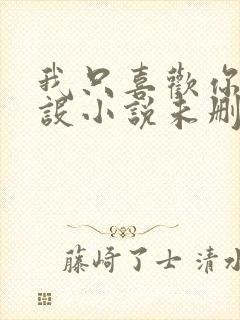 我只喜歡你
設小說未刪
藤崎了士 清水